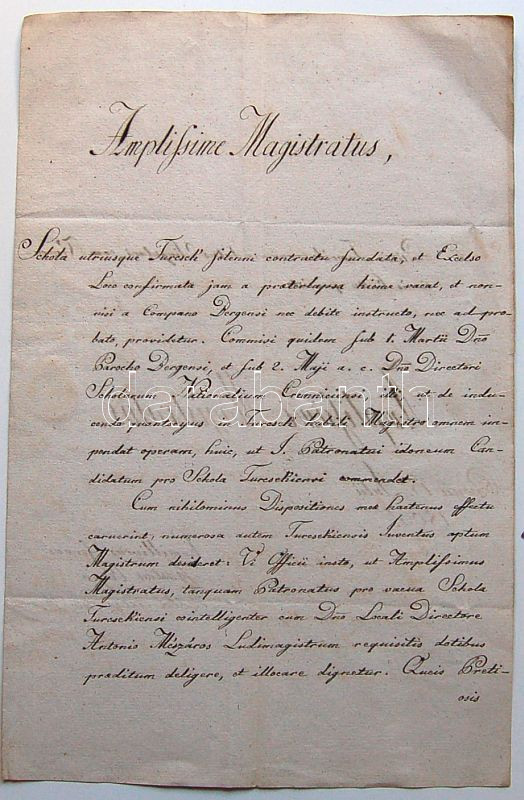 Amplissime Magistratus,
Schola utriusque Turcsek solenni contractu fundata, et Excelso
Loco confirmata jam a praeterlapsa hieme vacat, et non-
nisi a Compano Bergensi nec debite instructo, nec ad pro-
bato, providetur. Commisi quidem sub 1. Martii Dno
Parocho Bergensi, et sub 2. Maji a. c. Dno Directori
Scholarum Nationalium Cremniciensi ut de indu-
cendo quantocyus in Turcsek Magistro omnem im-
pendat operam, huic, ut I. Patronatui idoneum Can-
didatum pro Schola Turcsekiensi commendet.
Cum nihilominus Dispositiones meae hactenus effectu
caruerint, numerosa autem Turcsekiensis Juventus aptum
Magistrum desideret: Vi Officii insto, ut Amplissimus
Magistratus, tanquam Patronatus pro vacua Schola
Turcsekiensi cointelligenter cum Dno Locali Directore
Antonio Mészáros Ludimagistrum requisitis dotibus
praeditum deligere, et illocare dignetur. Queis Preti-
osis
darabanth